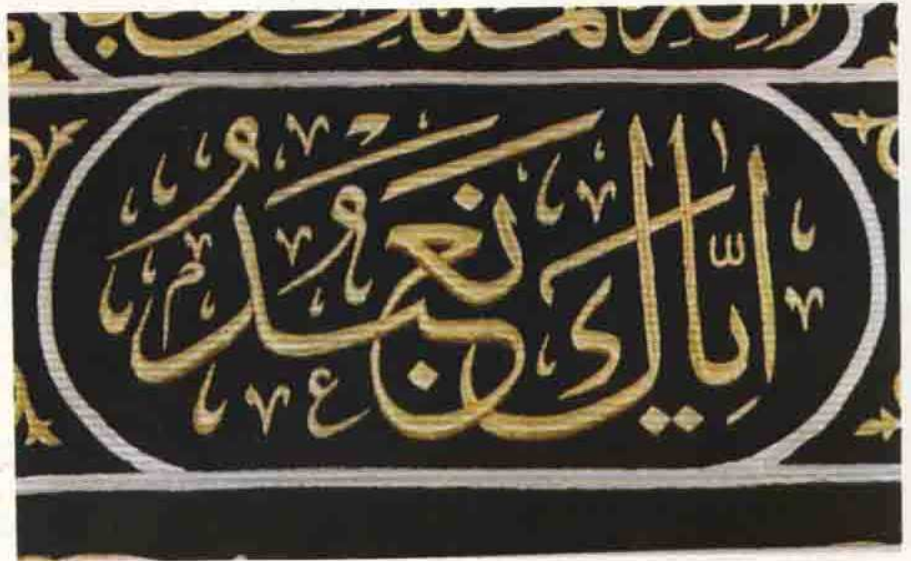 اِيَّاكَ نَعْبُدُ